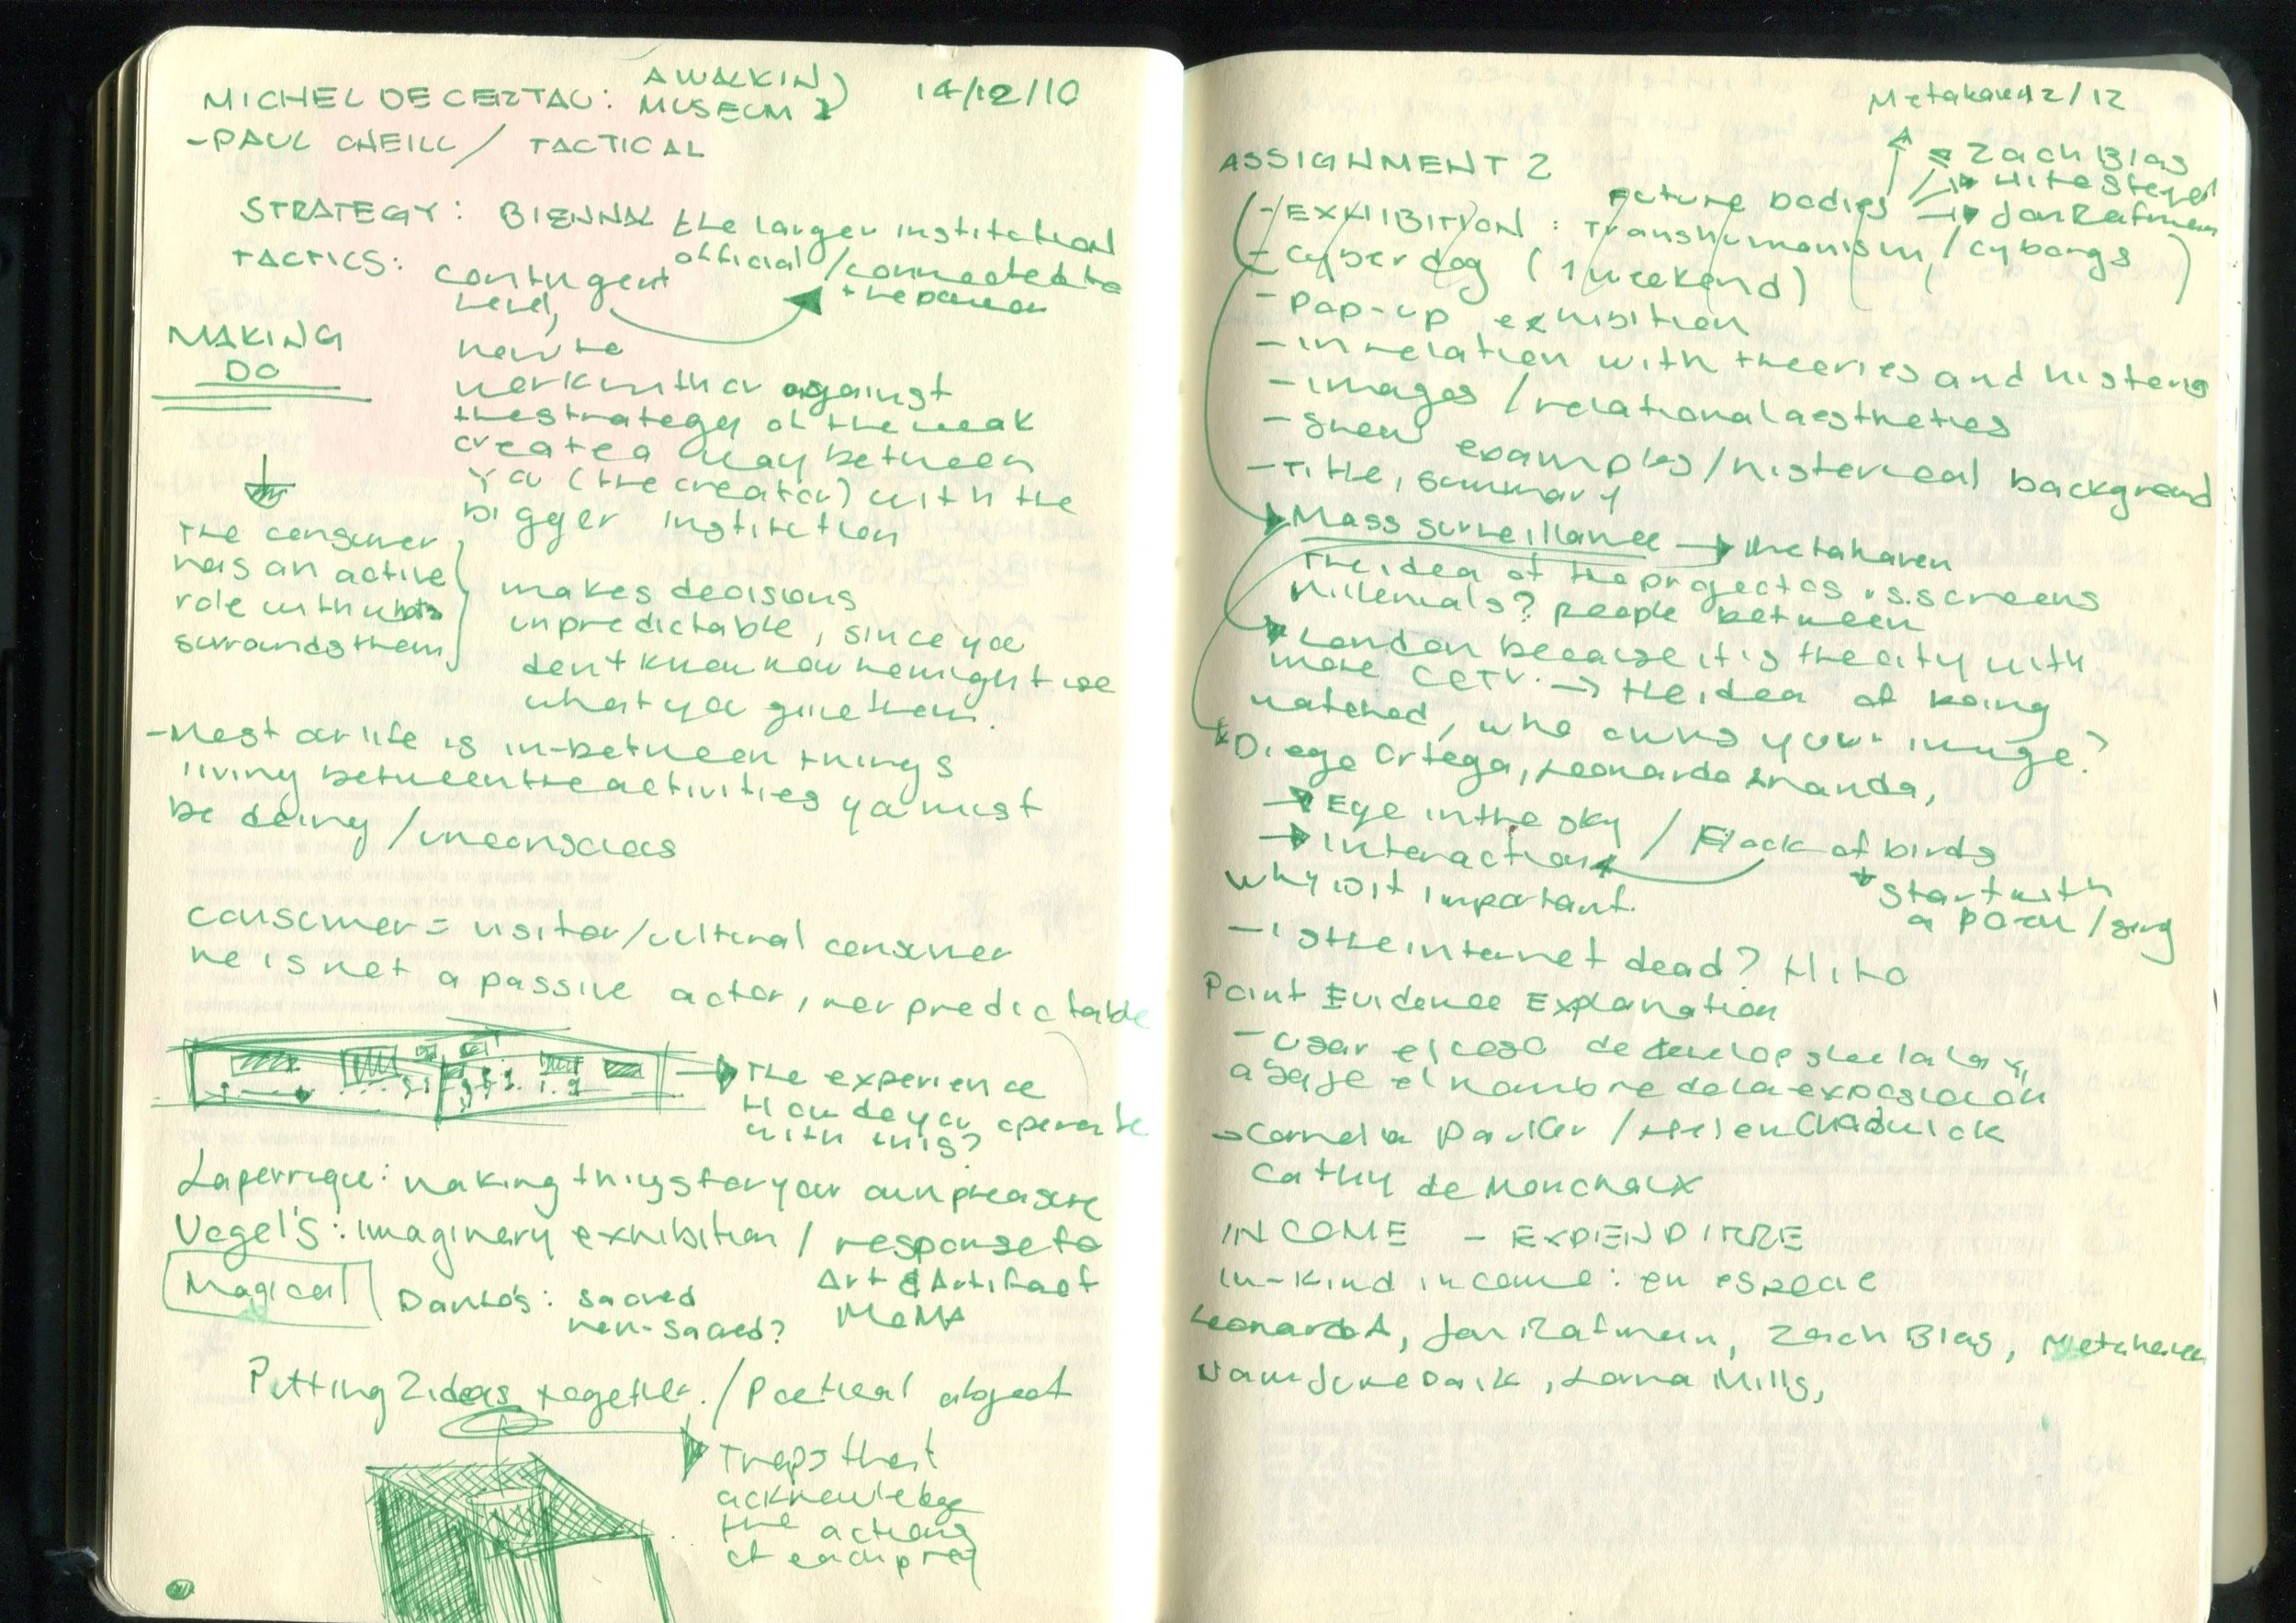 MICHEL DE CERTAU: A WALK IN MUSEUM 14/12/10
- PAUL / TACTICAL
STRATEGY: BIENNAL the larger institution
official / connected to
the power
TACTICS: contingent
level,
MAKING
DO
have to
work with or against
the strategy of the weak
create a way between
you (the creator) with the
bigger institution
The consumer
has an active
role with whats
surrounds them
makes decisions
unpredictable, since you
don't know how he might use
what you give them.
- Most our life is in-between things
living between the activities you must
be doing / unconscious
consumer = visitor/cultural consumer
he is not a passive actor, nor predictable
The experience
How do you operate
with this?
: making things for your own pleasure
Vogel's: imaginary exhibition / response to
Art & Artifact
MoMA
Magical
Danto's: sacred
non-sacred?
Putting 2 ideas together. / Poetical object
Traps that
acknowledge
the actions
of each prey
Metahaven 12/12
Zach Blas
Hito Steyerl
Jon Rafman
ASSIGNMENT 2
Future bodies
- EXHIBITION: Transhumanism / cyborgs
- Cyberdog (1 weekend)
- Pop-up exhibition
- in relation with theories and history
- images / relational aesthetics
- Show examples / historical background
- Title, summary
Mass surveillance → Metahaven
The idea of the project as vs. screens
Millenials? people between
London because it is the city with
more CCTV. → the idea of being
watched, who owns your image?
Diego Ortega, Leonardo Aranda,
Eye in the sky / Flock of birds
Interaction
Start with
a poem / song
Why is it important.
- is the internet dead? Hito
Point Evidence Explanation
- Usar el caso de
el nombre de la exposicion
→ Cornelia Parker / Helen Chadwick
Cathy de Monchaux
INCOME - EXPENDITRRE
In-kind income: en especie
Leonardo A, Jon Rafman, Zach Blas, Metahaven
Nam June Paik, Lorna Mills,